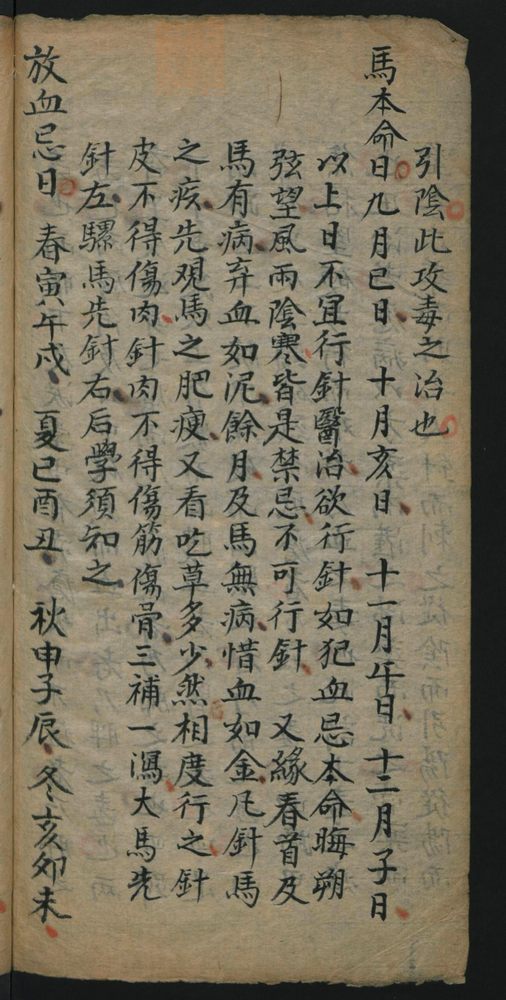 引陰此攻毒之治也
馬本命日九月巳日 十月亥日 十一月午日 十二月子日
以上日不宜行針醫治欲行針如犯血忌本命晦朔
弦望風雨陰寒皆是禁忌不可行針 又緣春首及
馬有病弃血如泥餘月及馬無病惜血如金凡針馬
之疾先观馬之肥瘦又看吃草多少然相度行之針
皮不得傷肉針肉不得傷筋傷骨三補一瀉大馬先
針左騾馬先針右后學須知之
放血忌日 春寅午戍 夏巳酉丑 秋申子辰 冬亥卯未